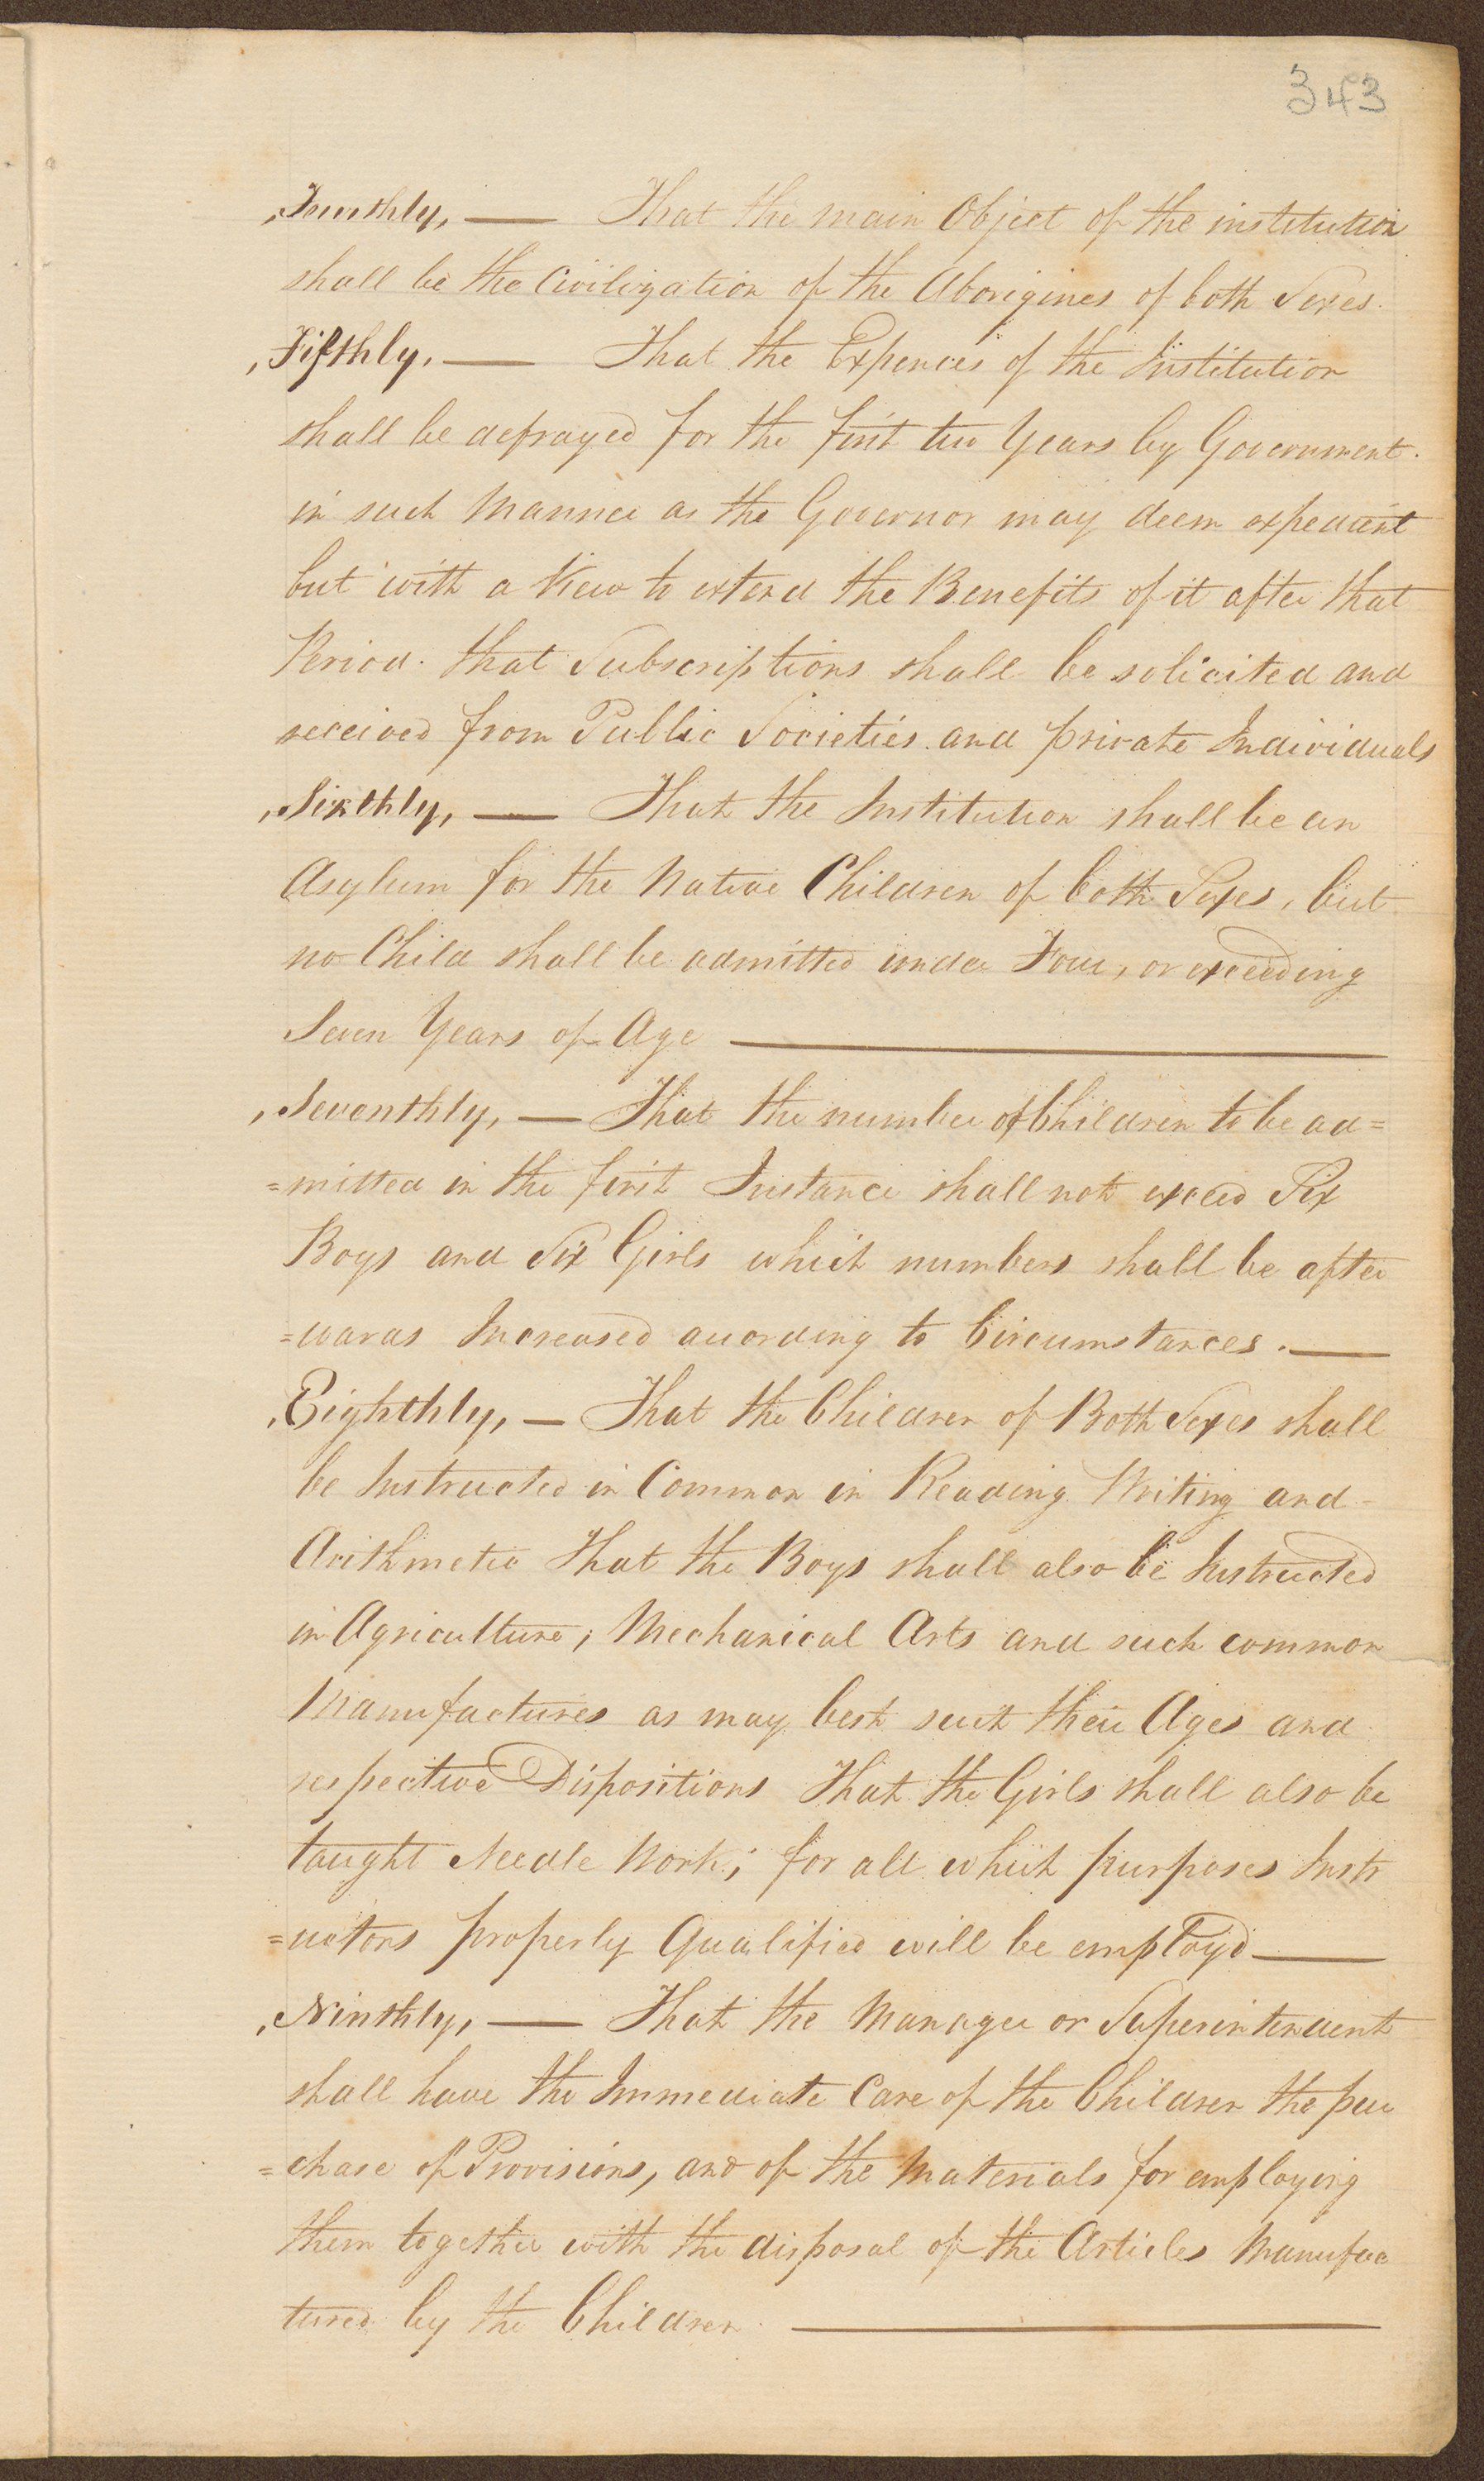 343
,Fourthly, — That the main Object of the institution
shall be the Civilization of the Aborigines of both Sexes.
,Fifthly. — That the Expences of the Institution
shall be defrayed for the first two Years by Government.
in such Manner as the Governor may deem expedient
but with a View to extend the Benefits of it after that
Period. that Subscriptions shall be solicited and
received from Public Societies and private Individuals
,Sixthly, — That the Institution shall be an
Asylum for the Native Children of both Sexes, but
no Child shall be admitted under Four, or exceeding
Seven Years of Age —
,Seventhly, — That the number of Children to be ad=
=mitted in the first Instance shall not exceed Six
Boys and Six Girls which numbers shall be after
=wards Increased according to Circumstances. —
,Eighthly, — That the Children of Both Sexes shall
be Instructed in Common in Reading Writing and
Arithmetic That the Boys shall also be Instructed
in Agriculture; Mechanical Arts and such common
Manufactures as may best suit their Ages and
respective Dispositions That the Girls shall also be
taught Needle Work; for all which purposes Instr
=uctors properly Qualified will be employd —
,Ninthly, — That the Manager or Superintendent
shall have the Immediate Care of the Children the pur
=chase of Provisions, and of the Materials for employing
them together with the disposal of the Articles Manufac
tured by the Children. —